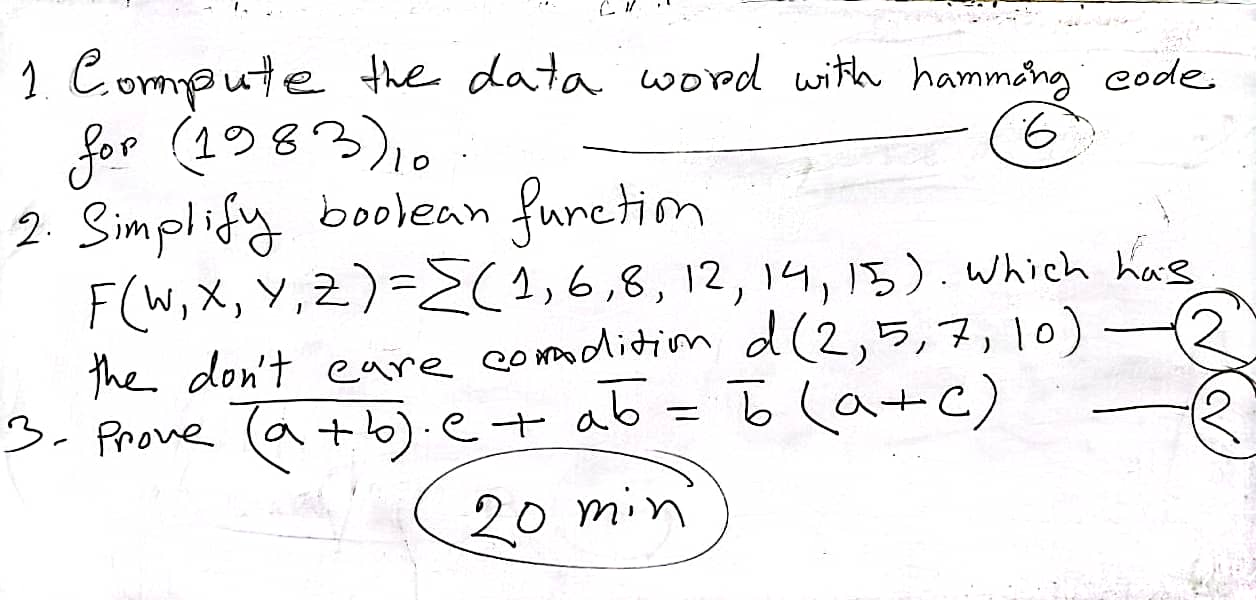 1. Compute the data word with hamming code
for (1983)₁₀. ——— 6
2. Simplify boolean function
F(W, X, Y, Z) = Σ(1, 6, 8, 12, 14, 15). Which has
the don't care condition d(2, 5, 7, 10) — 2
3. Prove \overline{(a + b)}·c + a\overline{b} = \overline{b}(a + c) — 2
20 min